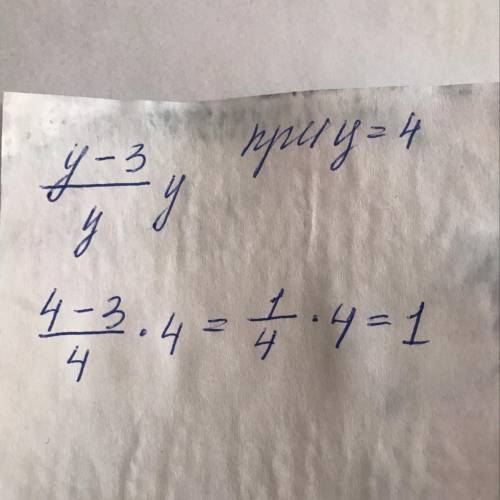 y - 3 / y y при y = 4
4 - 3 / 4 · 4 = 1 / 4 · 4 = 1